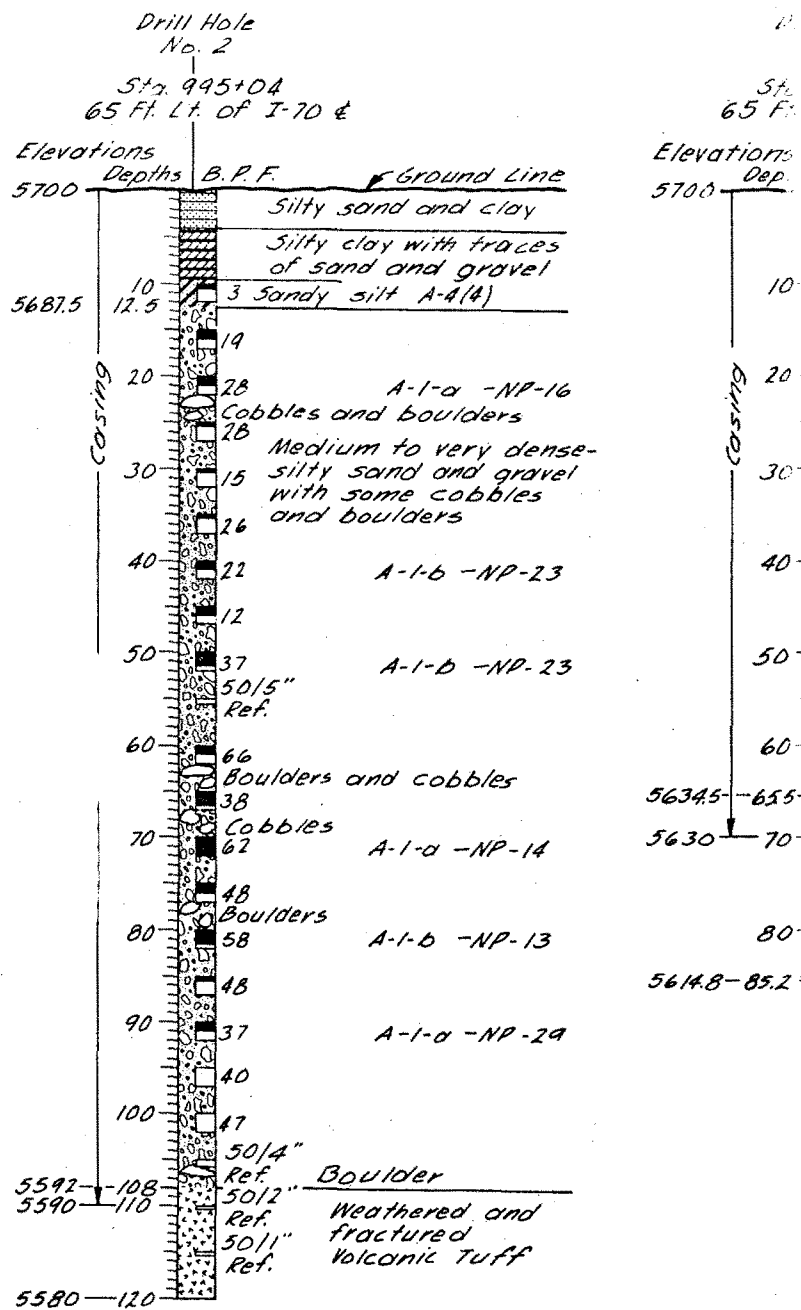 Drill Hole
No. 2
Sta. 995+04
65 Ft. Lt. of I-70 ℄
Elevations
Depths B.P.F.
Ground Line
5700
Silty sand and clay
Silty clay with traces
of sand and gravel
10
3 Sandy silt A-4(4)
5687.5 12.5
19
20
28 A-1-a -NP-16
Cobbles and boulders
28
Medium to very dense-
silty sand and gravel
with some cobbles
and boulders
30
15
26
Casing
40
22 A-1-b -NP-23
12
50
37 A-1-b -NP-23
50/5"
Ref.
60
66
Boulders and cobbles
38
Cobbles
70
62 A-1-a -NP-14
48
Boulders
80
58 A-1-b -NP-13
48
90
37 A-1-a -NP-29
40
100
47
50/4"
Ref. Boulder
5592 108
50/2"
5590 110
Ref.
Weathered and
fractured
Volcanic Tuff
50/1"
Ref.
5580 120
65 F
Elevations
Dep.
5700
10
20
Casing
30
40
50
60
5634.5 65.5
5630 70
80
5614.8 85.2